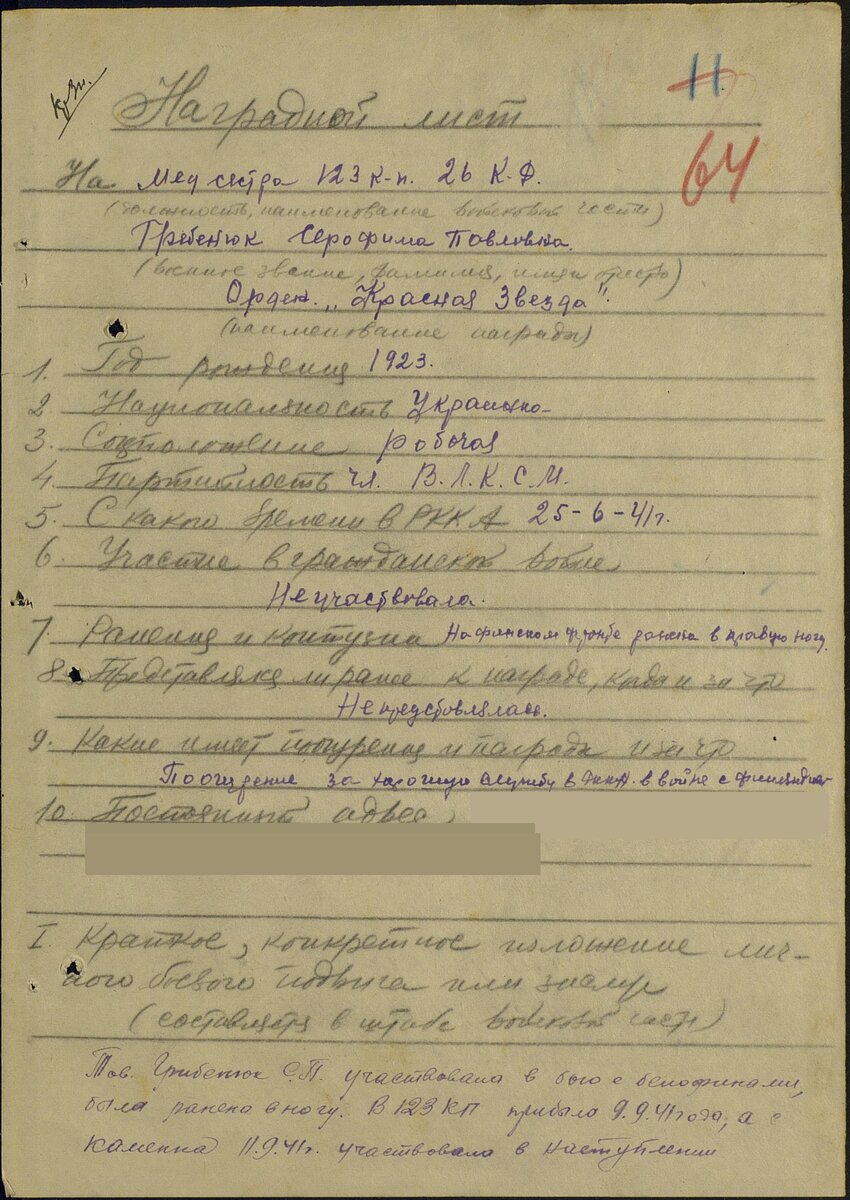 Кр Зв.
11
Наградной лист
64
На Мед сестра 123 к-п. 26 К-Д.
(должность, наименование войсковой части)
Гребенюк Серофима Павловна.
(военное звание, фамилия, имя и отчество)
Орден „Красная Звезда".
(наименование награды)
1. Год рождения 1923.
2 Национальность Украинка
3. Соцположение рабочая
4. Партийность чл. В.Л.К.С.М.
5. С какого времени в РККА 25-6-41г.
6. Участие в гражданской войне
Не участвовала.
7. Ранения и контузии На финском фронте ранена в правую ногу.
8. Представлялся ли ранее к награде, когда и за что
Не представлялась.
9. Какие имеет поощрения и награды и за что
Поощрение за хорошую службу в РККА. в войне с финляндией
10. Постоянный адрес,
I. Краткое, конкретное изложение лич-
ного боевого подвига или заслуг
(составляется в штабе войсковой части)
Тов. Грибенюк С.П. участвовала в бою с белофинами,
была ранена в ногу. В 123 КП прибыла 9.9.41 года, а с
каменка 11.9.41г. участвовала в наступлении